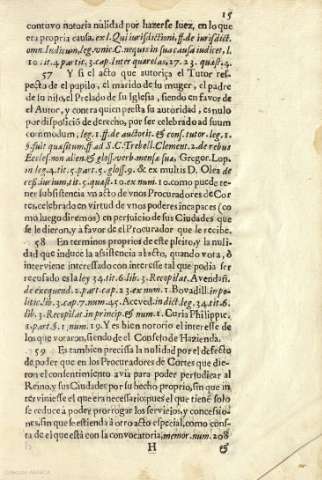 15
contuvo notoria nulidad por hazerse Iuez, en lo que
era propria causa. ex l. Qui iurisdictioni. ff. de iurisdict.
omn. Iudicum, leg. vnic. C. nequis in sua causa iudicet, l.
10. tit. 4. partit. 3. cap. Inter querelas. 27. 23. quæst. 4.
57 Y si el acto que autoriça el Tutor res-
pecto de el pupilo, el marido de su muger, el padre
de su hijo, el Prelado de su Iglesia, siendo en favor de
el Autor, y contra quien presta su autoridad, es nulo
por disposiciõ de derecho, por ser celebrado ad suum
commodum, leg. 1. ff. de auctorit. & cons. tutor. leg. 1.
§. fuit quæsitum. ff. ad S. C. Trebell. Clement. 2. de rebus
Eccles. non alien. & gloss. verb. mensæ suæ, Gregor. Lop.
in leg. 4. tit. 5. part. 5. gloss. 9. & ex multis D. Olea de
cess. iur. ium, tit. 5. quæst. 10. ex num. 10. como puede te-
ner subsistencia vn acto de vnos Procuradores de Cor-
tes, celebrado en virtud de vnos poderes incapaces (co
mo luego diremos) en perjuicio de sus Ciudades que
se le dieron, y a favor de el Procurador que le recibe.
58 En terminos proprios de este pleito, y la nuli-
dad que induce la asistencia al acto, quando vota, ò
interviene interessado con interesse tal que podia ser
recusado es la ley 34. tit. 6. lib. 3. Recopilat. Avendañ.
de exequend. 2. part. cap. 23. ex num. 1. Bovadill. in po-
litic. lib. 3. cap. 7. num. 45. Acceved. in dict. leg. 34. tit. 6.
lib. 3. Recopilat. in princip. & num. 1. Curia Philippic.
1. part. §. 1. num. 19. Y es bien notorio el interesse de
los que votaron, siendo de el Consejo de Hazienda.
59 Es tambien precissa la nulidad por el defecto
de poder que en los Procuradores de Cortes que die-
ron el consentimiento avia para poder perjudicar al
Reino, y sus Ciudades por su hecho proprio, sin que in
terviniesse el que era necessario: pues el que tienē solo
se reduce à poder prorrogar los servicios, y concessio-
nes, sin que se estienda à otro acto especial, como cons-
ta de el que està con la convocatoria, memor. num. 208
H &